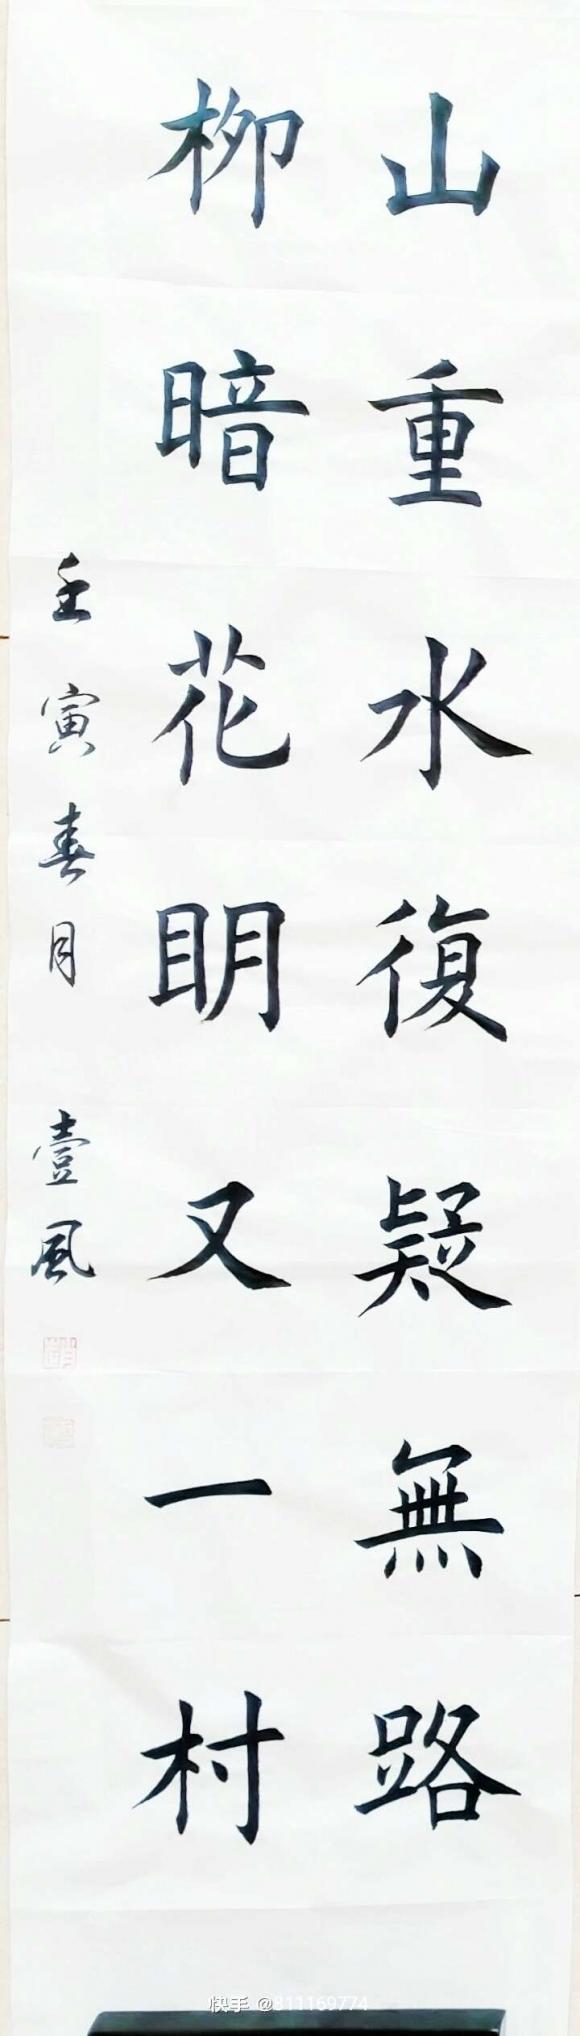 山重水復疑無路
柳暗花眀又一村
壬寅春月 壹風
快手 @811169774